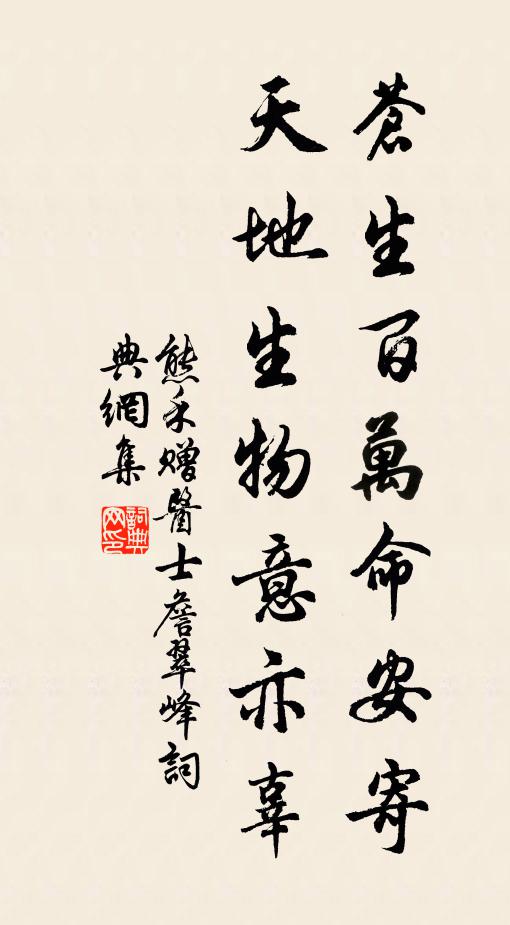 蒼生百萬命安寄
天地生物意亦辜
熊禾贈醫士詹翠峰詞
典網集
詞典
网印